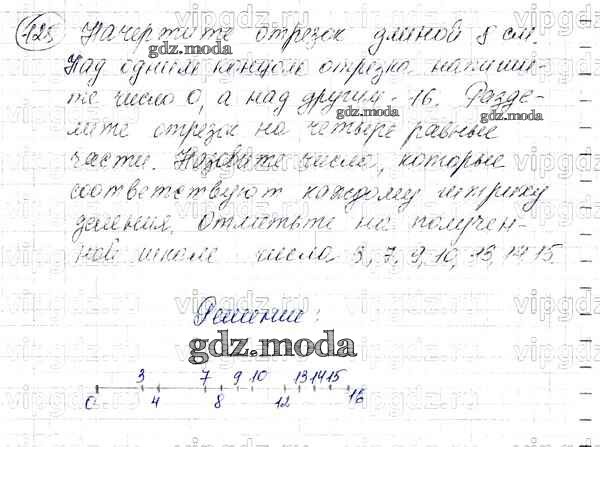 125. Начертите отрезок длиной 8 см.
Над одним концом отрезка напиши-
те число 0, а над другим - 16. Разде-
лите отрезок на четыре равные
части. Назовите числа, которые
соответствуют каждому штриху
деления. Отметьте на получен-
ной шкале числа 3, 7, 9, 10, 13, 14, 15.
Решение:
gdz.moda
3 7 9 10 13 14 15
0 4 8 12 16